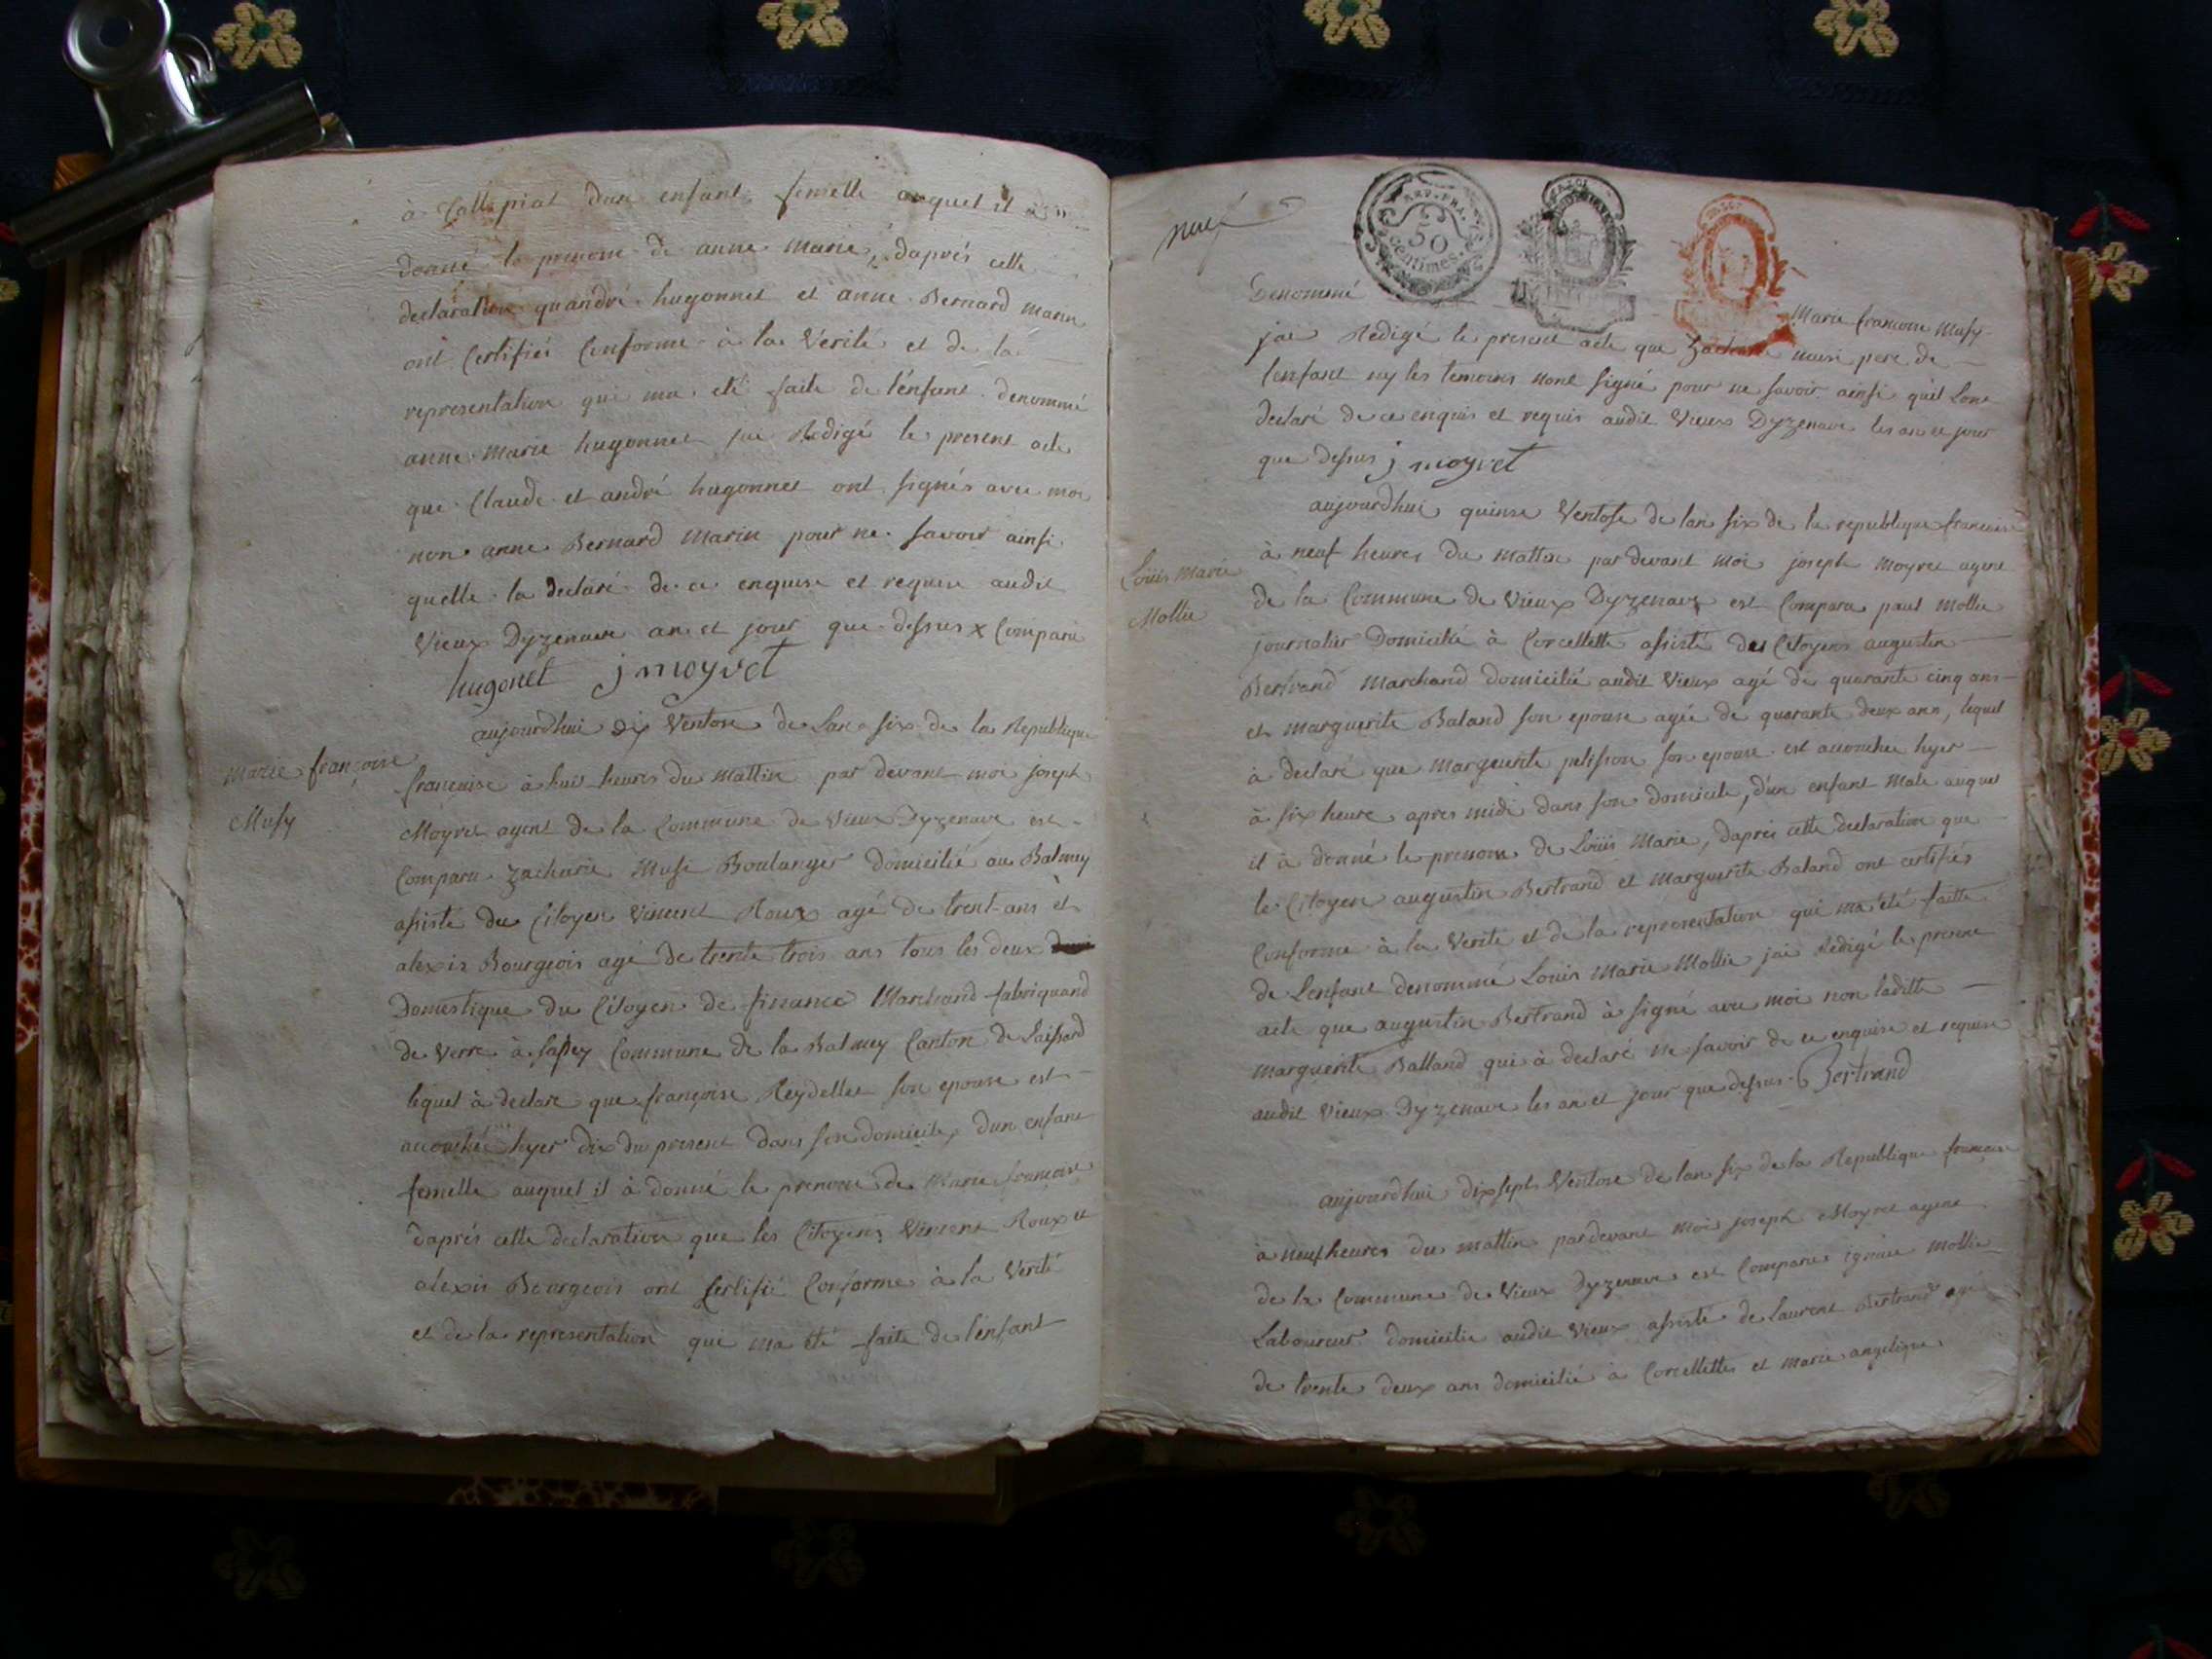 à Calle piat dun enfant femelle auquel il à
donné le prenom de anne marie, daprès cette
declaration quandré hugonnet et anne Bernard marin
ont Certifiés Conforme à la Vérité et de la
representation qui ma eté faite de l'énfant denommé
anne marie hugonnet jai Redigé le present acte
que Claude et andré hugonnet ont signés avec moi
non anne Bernard Marin pour ne savoir ainsi
quelle la declaré de ce enquise et requise audit
Vieux Dyzenave an et jour que dessus x Comparu
hugonet j moyret
marie françoise
Musy
aujourdhui dix Ventose de Lan six de la Republique
françoise à huit heures du mattin par devant moi joseph
Moyret agent de la Commune de Vieux Dyzenave est
Comparu zacharie Musi Boulanger domicilié au Balmey
assisté du Citoyen Vincent Roux agé de trent ans et
alexis Bourgeois agé de trente trois ans tous les deux
Domestique du Citoyen de finance Marchand fabriquand
de Verre à Commune de la Balmey Canton de Laissard
lequel à declaré que françoise Reydellet son epouse est
accouchée hyer dix du present dans son domicile, dun enfant
femelle auquel il à donné le prenom de Marie françoise
daprès cette declaration que les Citoyens Vincent Roux et
alexis Bourgeois ont Certifié Conforme à la Verité
et de la representation qui ma été faite de l'énfant
neuf
REP. FRA.
50
Centimes.
Denommé Marie francoise Musy
jai Redigé le present acte que Zacharie musi pere de
lenfant ny les temoins nont signé pour ne savoir ainsi quil Lont
declaré de ce enquis et requis audit Vieux Dyzenave les an et jour
que dessus j moyret
Louis Marie
Mollie
aujourdhui quinse Ventose de lan six de la republique francoise
à neuf heures du mattin par devant moi joseph moyret agent
de la Commune de Vieux Dyzenave est Comparu paul mollie
journalier Domicilié à Corcellette assisté des Citoyens augustin
Bertrand Marchand domicilié audit Vieux agé de quarante cinq ans
et marguerite Baland son epouse agée de quarante deux ans, lequel
à declaré que marguerite pelisson son epouse est accouchée hyer
à six heure apres midi dans son domicile, d'un enfant male auquel
il à donné le prenom de Louis Marie, daprès cette declaration que
le Citoyen augustin Bertrand et marguerite Baland ont certifiés
Conforme à la Verité et de la representation qui ma été faitte
de Lenfant denommé Louis Marie Mollie jai Redigé le present
acte que augustin Bertrand à signé avec moi non laditte
marguerite Balland qui à declaré ne savoir de ce enquise et requise
audit Vieux Dyzenave les an et jour que dessus. Bertrand
aujourdhui dix sept Ventose de lan six de la Republique francoise
à neuf heures du mattin pardevant moi joseph Moyret agent
de la Commune de Vieux Dyzenave est Comparu ignace mollie
Laboureur domicilie audit Vieux assisté de Laurent Bertrand agé
de trente deux ans domicilié à Corcellettes et marie angelique